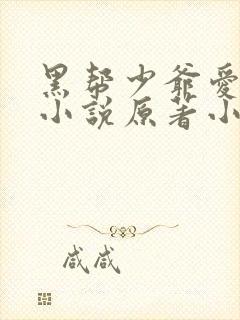 黑帮少爷爱
小说原著小
咸咸